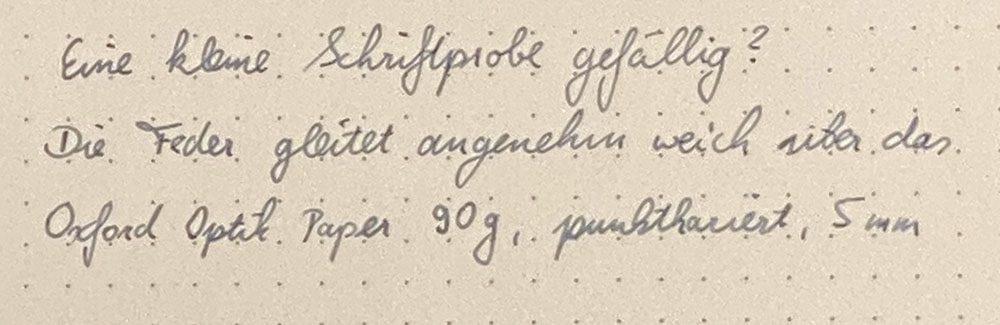 Eine kleine Schriftprobe gefällig?
Die Feder gleitet angenehm weich über das
Oxford Optik Paper 90g, punktkariert, 5mm